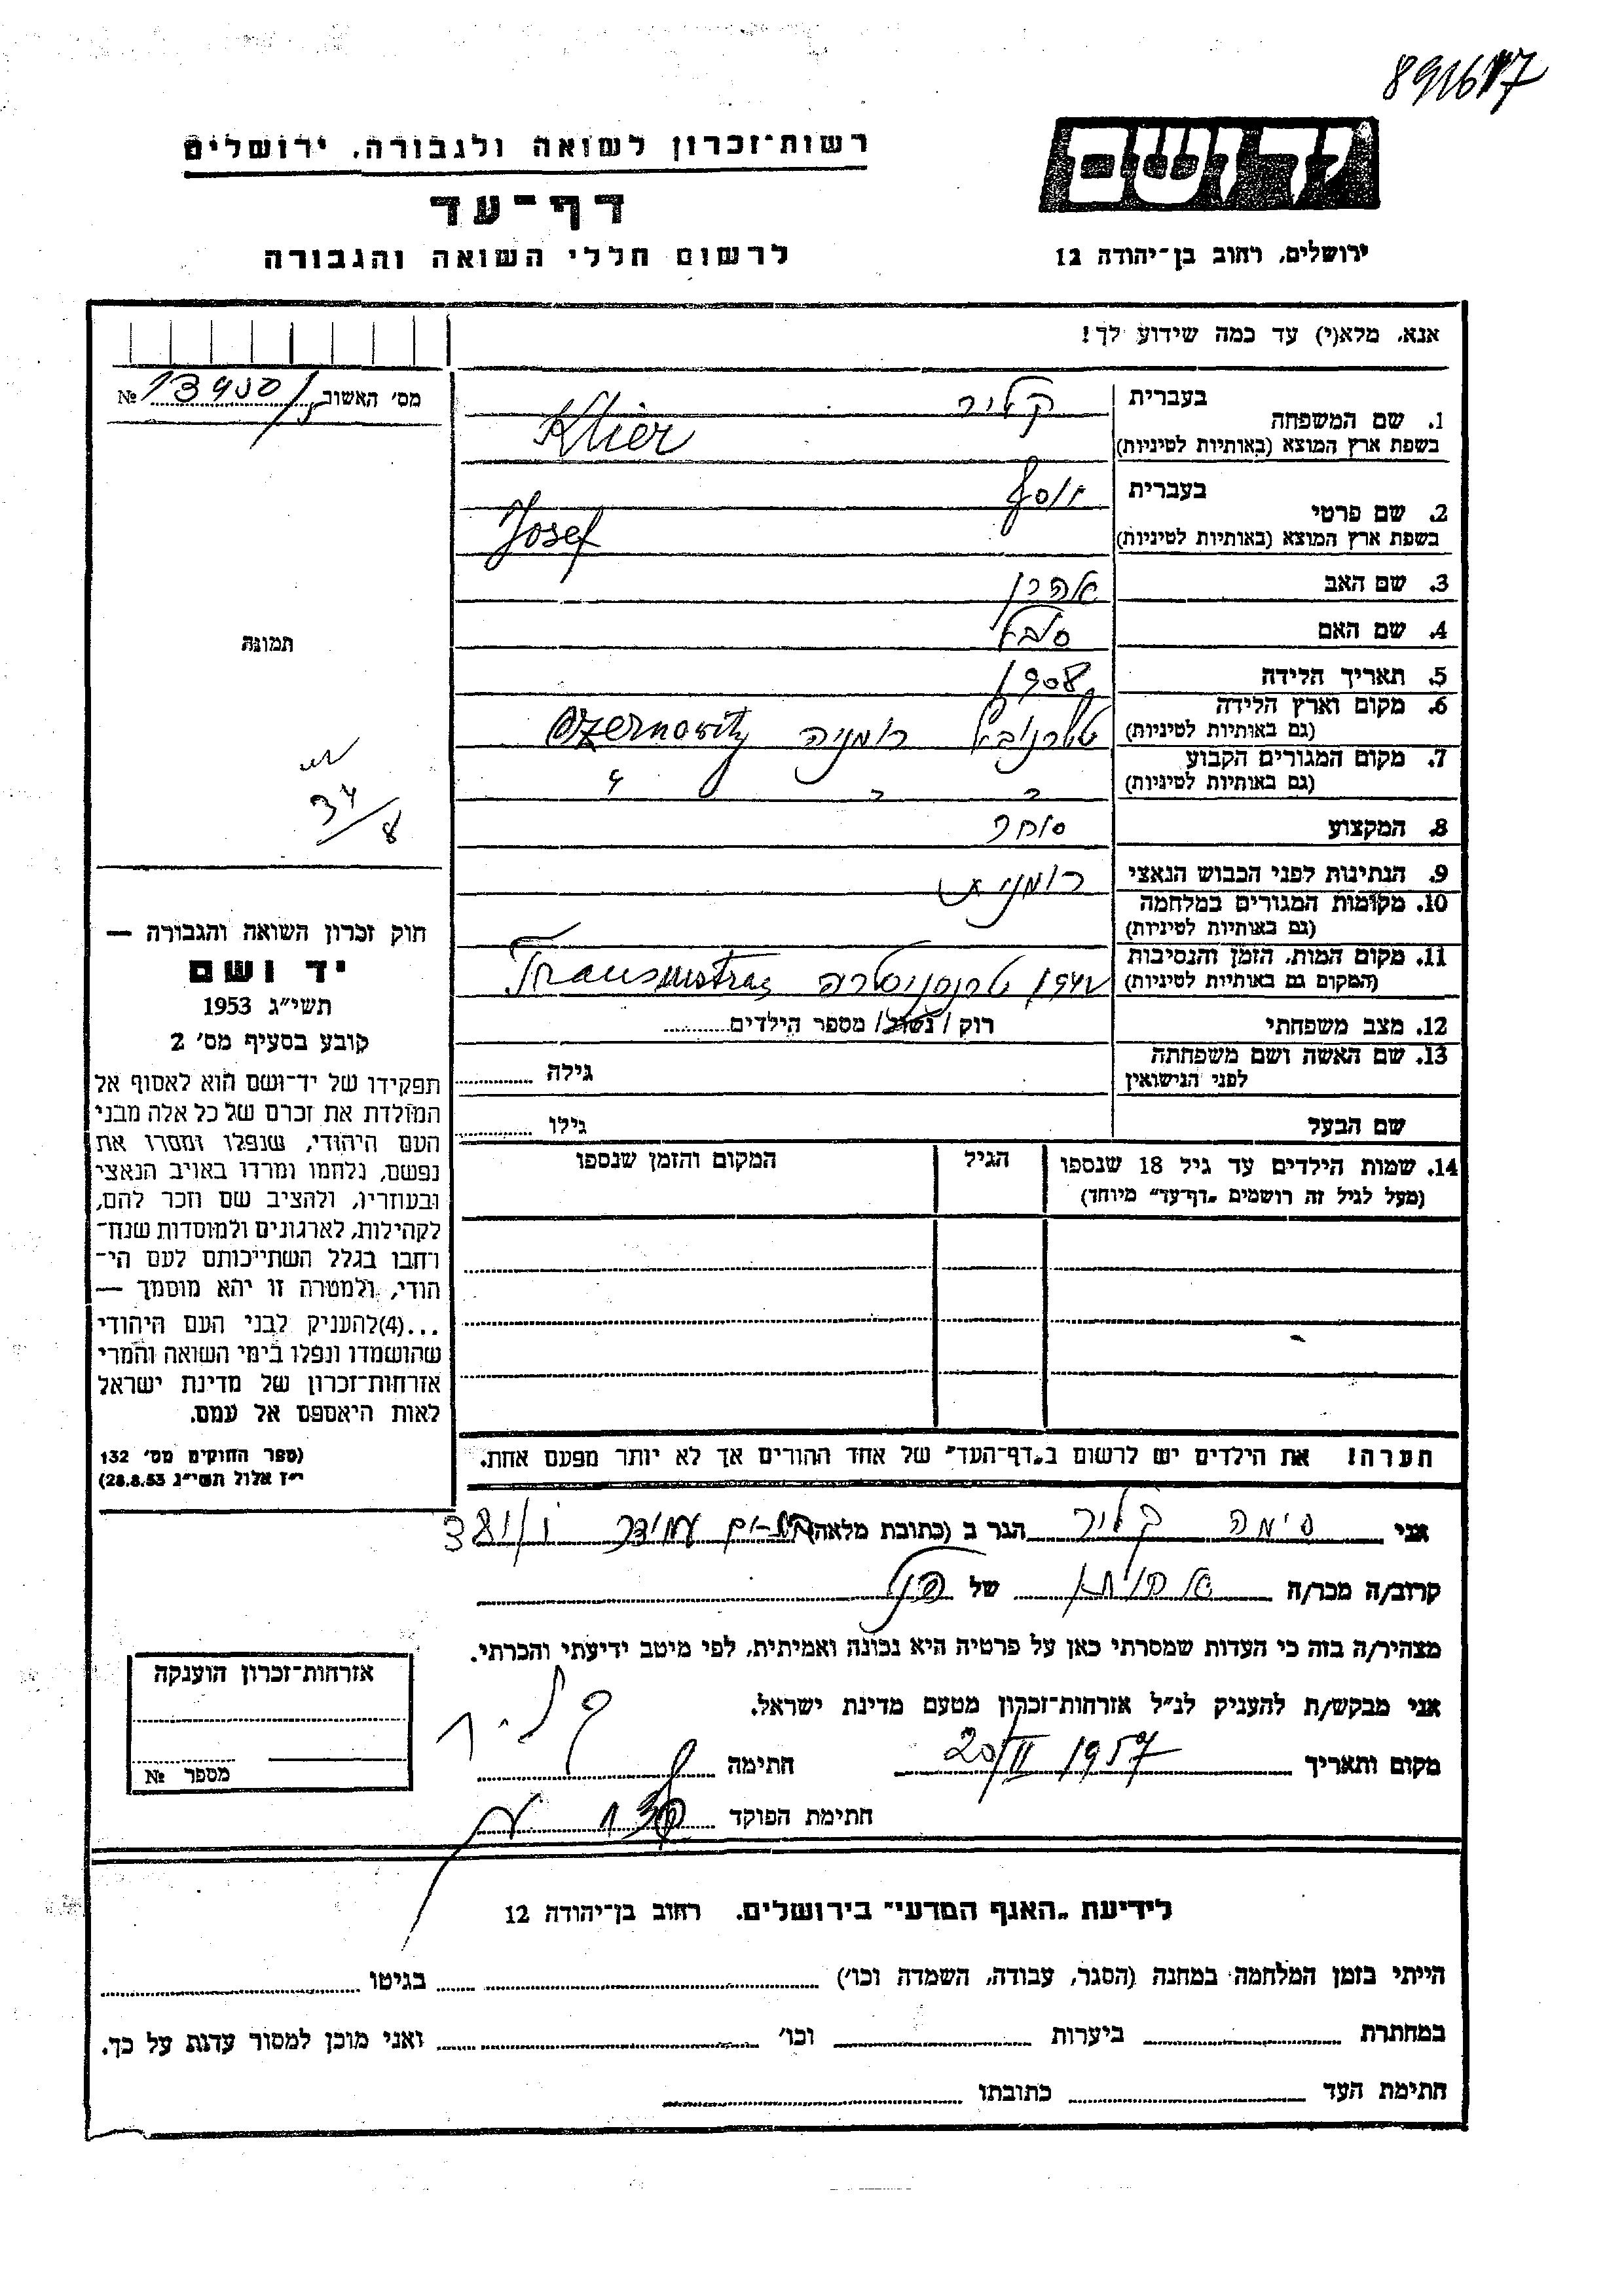 891617
רשות־זכרון לשואה ולגבורה, ירושלים
דף־עד
לרשום חללי השואה והגבורה
יד ושם
ירושלים, רחוב בן־יהודה 12
אנא, מלא(י) עד כמה שידוע לך!
מס׳ האשוב №
1. שם המשפחה
בעברית קליר
בשפת ארץ המוצא (באותיות לטיניות) Klier
2. שם פרטי
בעברית יוסף
בשפת ארץ המוצא (באותיות לטיניות) Josef
3. שם האב אהרן
4. שם האם
5. תאריך הלידה 1908
6. מקום וארץ הלידה
(גם באותיות לטיניות) רומניה Czernowitz
7. מקום המגורים הקבוע
(גם באותיות לטיניות)
8. המקצוע סוחר
9. הנתינות לפני הכבוש הנאצי רומנית
10. מקומות המגורים במלחמה
(גם באותיות לטיניות)
11. מקום המות, הזמן והנסיבות
(המקום גם באותיות לטיניות) 1942 טרנסניסטריה
12. מצב משפחתי רוק / נשוי / מספר הילדים
13. שם האשה ושם משפחתה
לפני הנישואין גילה
שם הבעל גילו
14. שמות הילדים עד גיל 18 שנספו
(מעל לגיל זה רושמים „דף־עד״ מיוחד)
הגיל
המקום והזמן שנספו
תמונה
34/8
חוק זכרון השואה והגבורה —
יד ושם
תשי״ג 1953
קובע בסעיף מס׳ 2
תפקידו של יד־ושם הוא לאסוף אל
המולדת את זכרם של כל אלה מבני
העם היהודי, שנפלו ומסרו את
נפשם, נלחמו ומרדו באויב הנאצי
ובעוזריו, ולהציב שם וזכר להם,
לקהילות, לארגונים ולמוסדות שנח־
רחבו בגלל השתייכותם לעם הי־
הודי, ולמטרה זו יהא מוסמך —
...(4)להעניק לבני העם היהודי
שהושמדו ונפלו בימי השואה והמרי
אזרחות־זכרון של מדינת ישראל
לאות היאספם אל עמם.
(ספר החוקים מס׳ 132
י״ז אלול תשי״ג 28.8.53)
הערה! את הילדים יש לרשום ב„דף־העד״ של אחד ההורים אך לא יותר מפעם אחת.
אני סימה קליר הגר ב (כתובת מלאה)
קרוב/ה מכר/ה של
מצהיר/ה בזה כי העדות שמסרתי כאן על פרטיה היא נכונה ואמיתית, לפי מיטב ידיעתי והכרתי.
אני מבקש/ת להעניק לנ״ל אזרחות־זכרון מטעם מדינת ישראל.
מקום ותאריך 20/II 1957 חתימה
חתימת הפוקד
אזרחות־זכרון הוענקה
מספר №
לידיעת „האגף המדעי״ בירושלים. רחוב בן־יהודה 12
הייתי בזמן המלחמה במחנה (הסגר, עבודה, השמדה וכו׳) בגיטו
במחתרת ביערות וכו׳ ואני מוכן למסור עדות על כך.
חתימת העד כתובתו